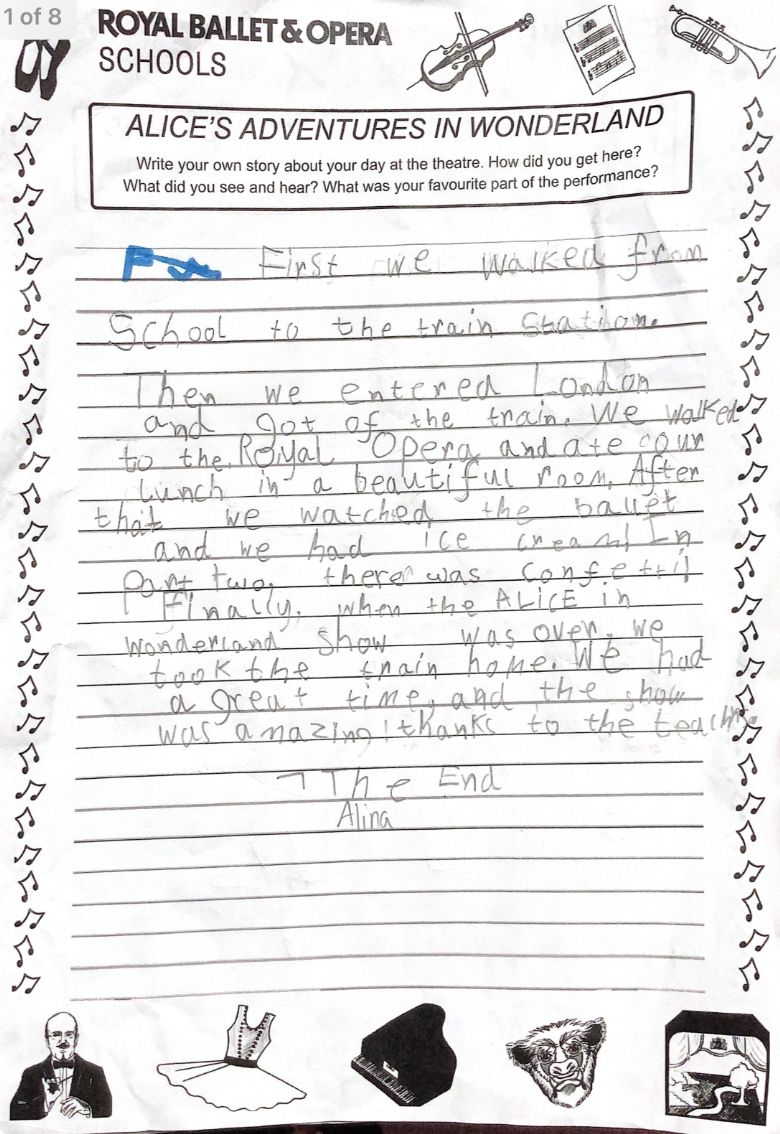 1 of 8
ROYAL BALLET & OPERA
SCHOOLS
ALICE'S ADVENTURES IN WONDERLAND
Write your own story about your day at the theatre. How did you get here?
What did you see and hear? What was your favourite part of the performance?
First we walked from
School to the train Station.
Then we entered London
and got of the train. We walked
to the Royal Opera and ate our
lunch in a beautiful room. After
that we watched the ballet
and we had ice cream! In
Part two, there was confetti!
Finally, when the ALiCE in
wonderland show was over, we
took the train home. We had
a great time, and the show
was amazing! thanks to the
The End
Alina